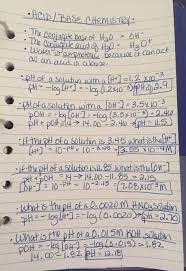 ACID/BASE CHEMISTRY:
• The conjugate base of H₂O = OH⁻
• The conjugate acid of H₂O = H₃O⁺
• Water is amphoteric because it can act
as an acid or a base.
• pH of a solution with a [H⁺] = 1.2 x 10⁻³
pH = -log[H⁺] = -log(1.2x10⁻³) pH = 2.9
• pH of a solution with a [OH⁻] = 3.5x10⁻³
pOH = -log[OH⁻] = -log(3.5x10⁻³) = 2.46
pH + pOH = 14 → 14.00 - 2.46 = pH = 11.5
• if the pH of a solution is 3.45 what is the [H⁺]
[H⁺] = 10^-pH = 10^-3.45 = 3.55x10⁻⁴M
• if the pH of a solution is 11.85 what is the [OH⁻]
pOH = 14 - pH = 14.00 - 11.85 = 2.15
[OH⁻] = 10^-pOH = 10^-2.15 = 7.08x10⁻³M
• What is the pH of a 0.0020 M HNO₃ solution
pH = -log[H⁺] = -log(0.0020) pH = 2.70
• What is the pH of a 0.015M KOH solution
pOH = -log[OH⁻] = -log(0.015) = 1.82
14.00 - 1.82 = pH = 12.18